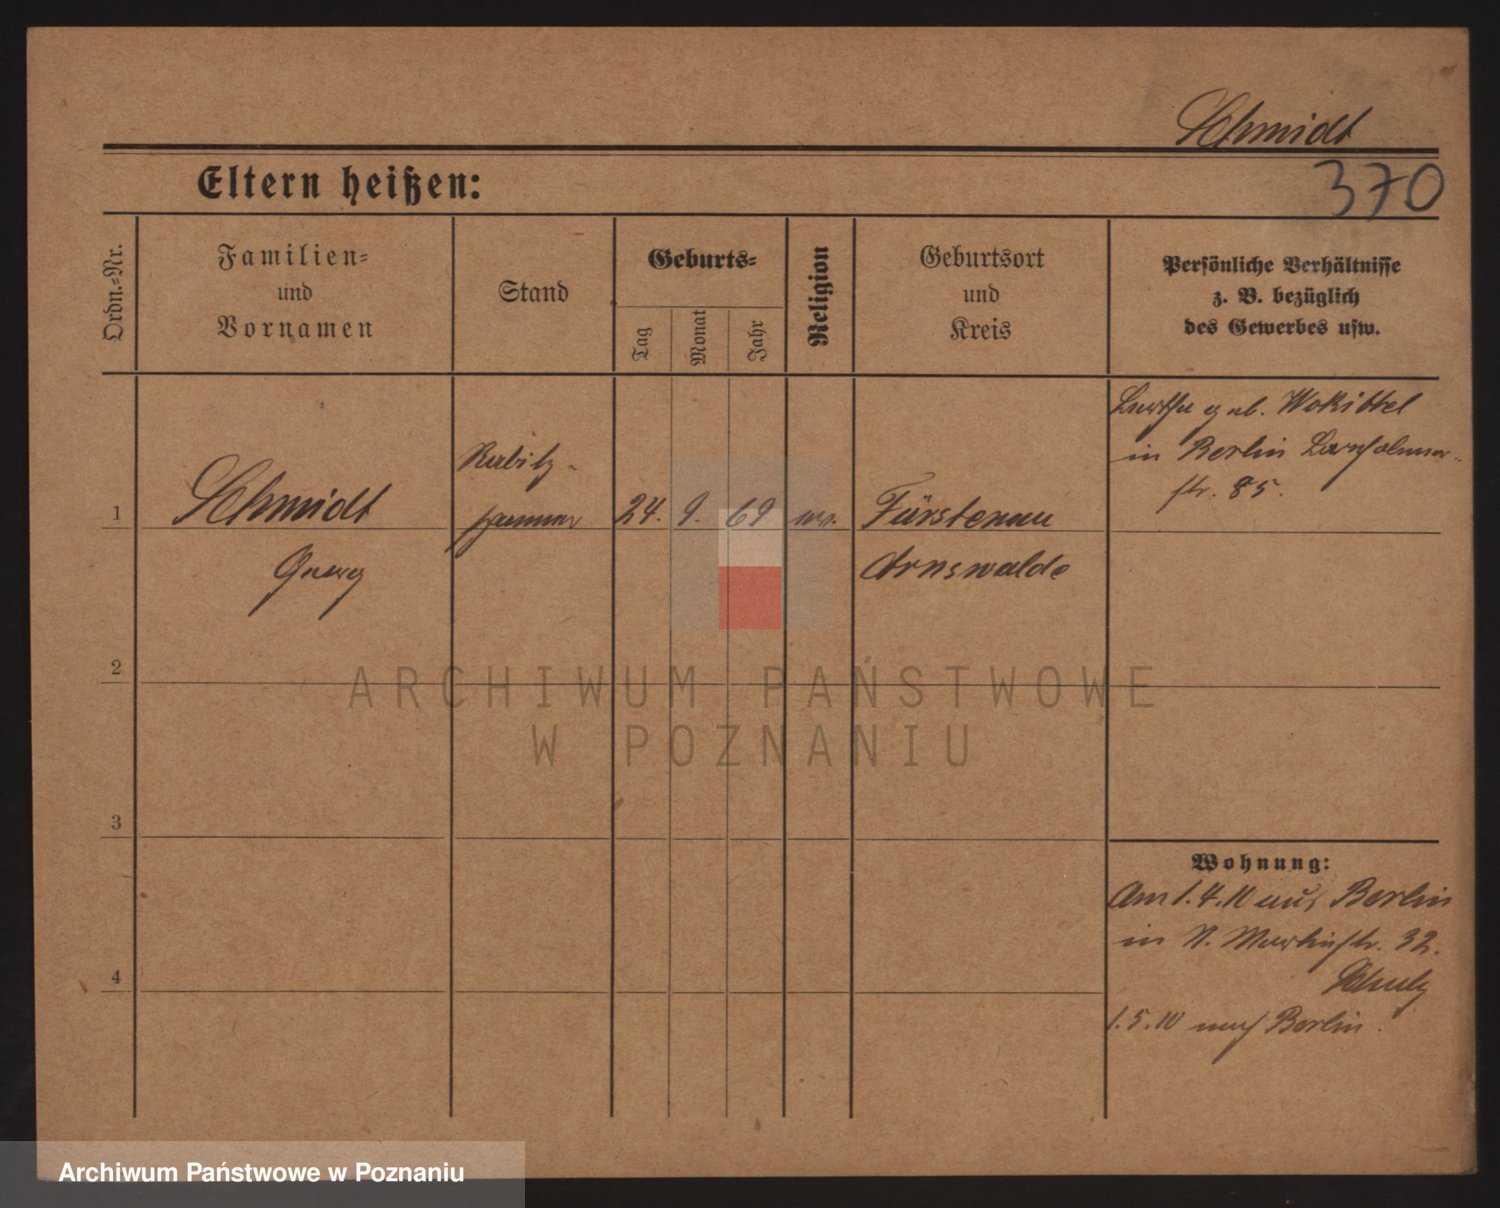 Schmidt
370
Eltern heißen:
Ordn.-Nr.
Familien-
und
Vornamen
Stand
Geburts-
Tag
Monat
Jahr
Religion
Geburtsort
und
Kreis
Persönliche Verhältnisse
z. B. bezüglich
des Gewerbes usw.
geb. Wokittel
in Berlin
str. 85.
Rabitz-
spanner
1
Schmidt
24. 9. 69
Fürstenau
Georg
Arnswalde
2
3
4
Wohnung:
Am 1.4.10 aus Berlin
in St. Martinstr. 32.
Schulz
1.5.10 nach Berlin.
ARCHIWUM PAŃSTWOWE
W POZNANIU
Archiwum Państwowe w Poznaniu